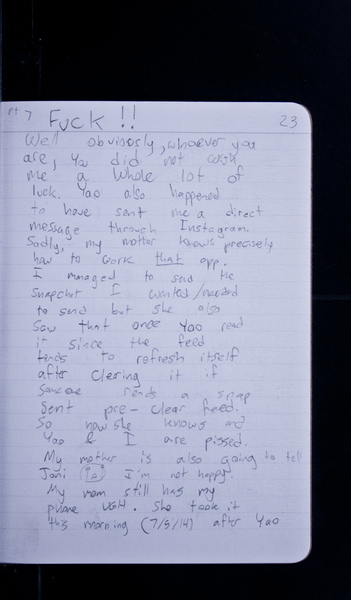 pt 7
Fuck !! 23
Well obviously, whoever you
are, you did not wish
me a whole lot of
luck. Yao also happened
to have sent me a direct
message through Instagram.
Sadly, my mother knows precisely
how to work that app.
I managed to send the
snapchat I wanted/needed
to send but she also
saw that once Yao read
it since the feed
tends to refresh itself
after clearing it if
someone sends a snap
sent pre-clear feed.
So now she knows and
Yao & I are pissed.
My mother is also going to tell
Jodi I'm not happy.
My mom still has my
phone ugh. She took it
this morning (7/5/14) after Yao